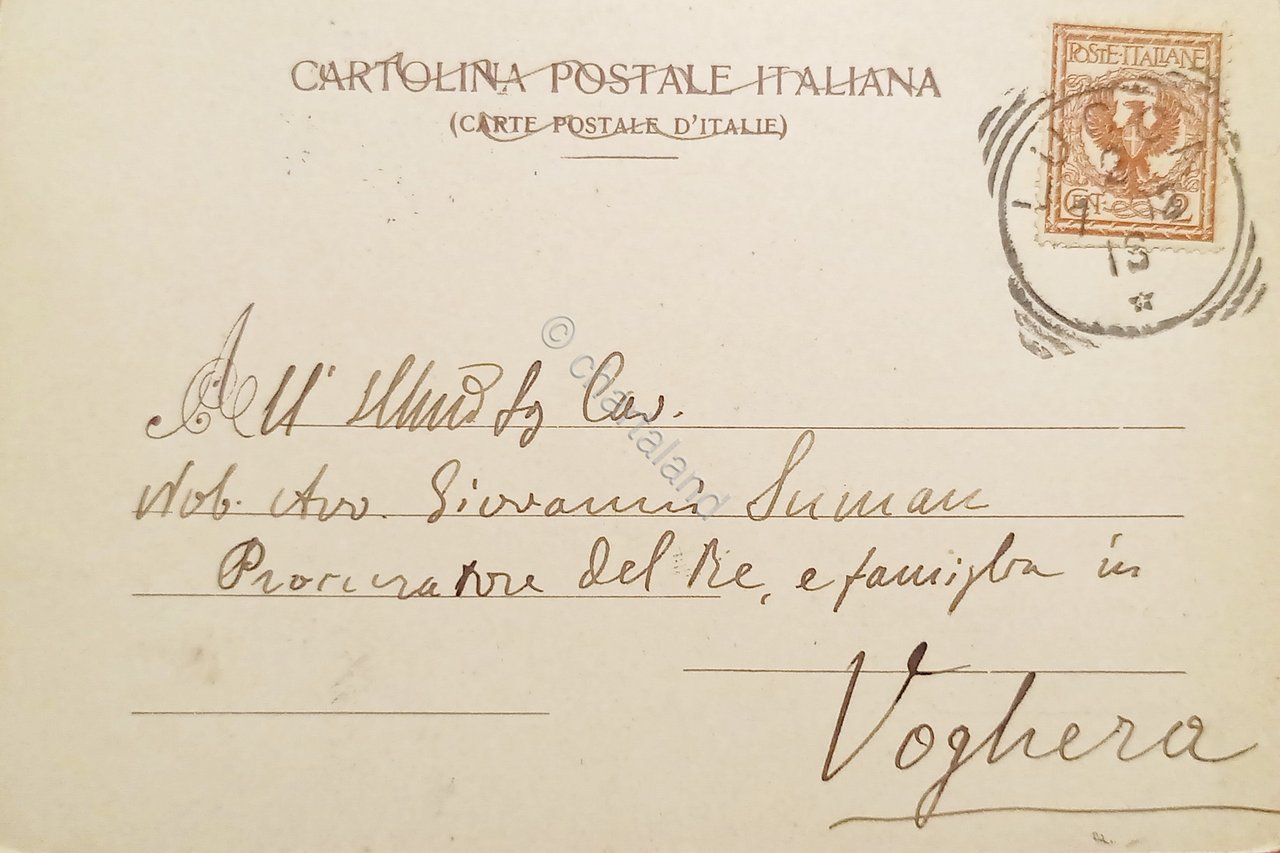 CARTOLINA POSTALE ITALIANA
(CARTE POSTALE D'ITALIE)
POSTE·ITALIANE
CENT. 2
LUCCA
© chartaland
All' Illmo Sg Cav.
Nob. Avv. Giovanni Suman
Procuratore del Re, e famiglia in
Voghera